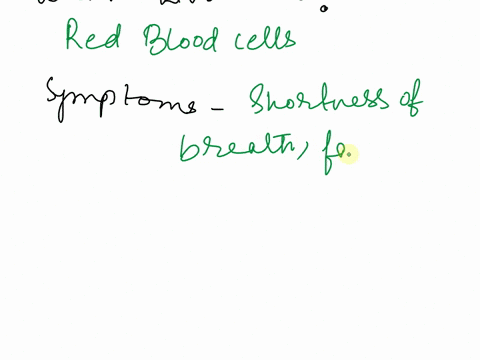 Red Blood cells
Symptoms - Shortness of
breath, fe